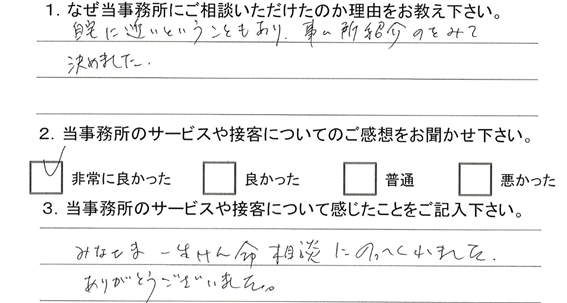 1. なぜ当事務所にご相談いただけたのか理由をお教え下さい。
自宅に近いということもあり、事ム所紹介のをみて
決めました。
2. 当事務所のサービスや接客についてのご感想をお聞かせ下さい。
非常に良かった 良かった 普通 悪かった
3. 当事務所のサービスや接客について感じたことをご記入下さい。
みなさま一生けん命相談にのってくれました。
ありがとうございました。